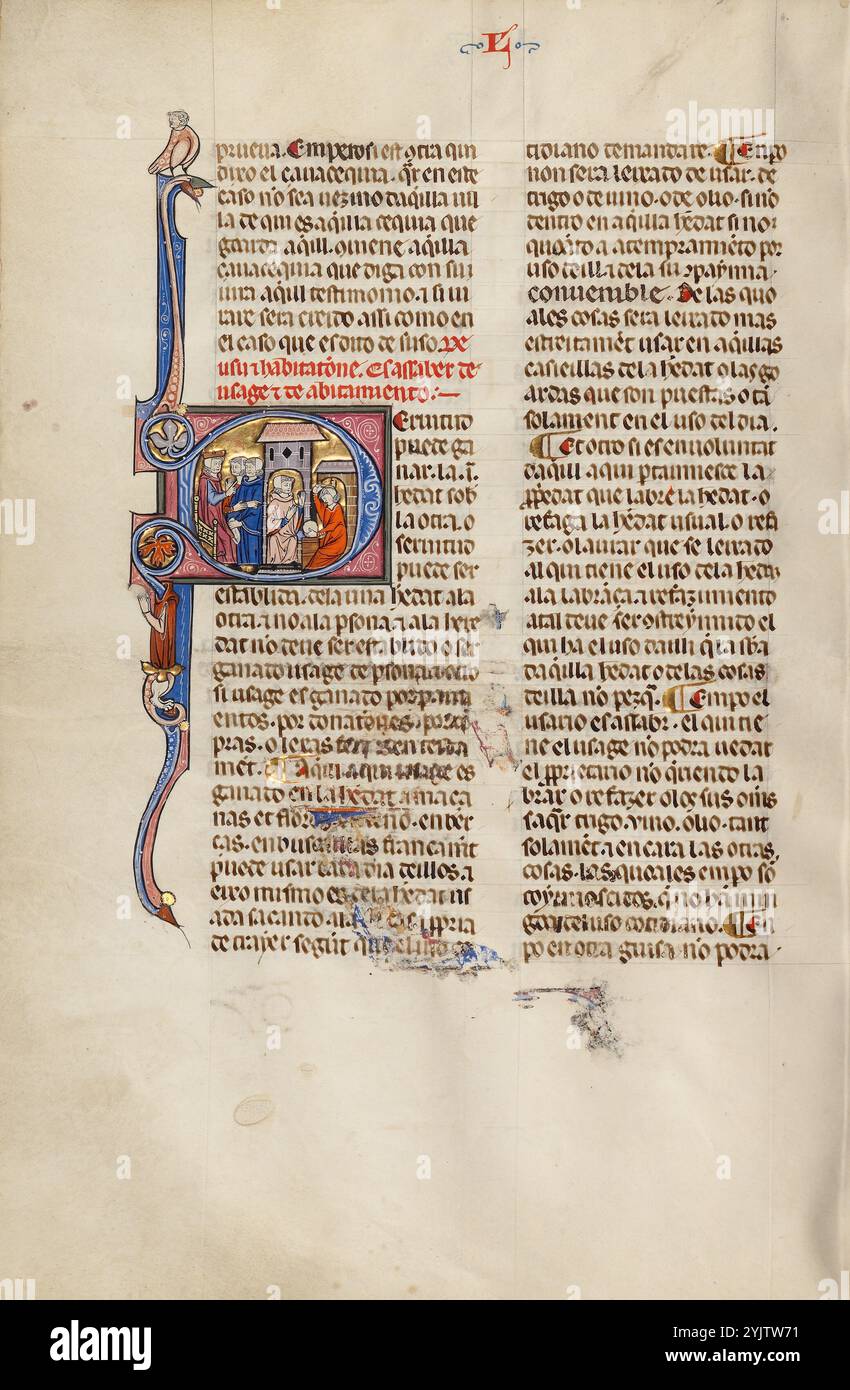 L
prueua. Empero si est otra qui
dixo el çauacequia. qar en este
caso no sea uezino daquilla uil
la de qui es aquilla cequia que
goarda aquill. Conuiene aquilla
çauacequia que diga con su
iura aquill testimonio. a si iu
rare sera creido assi como en
el caso que es dito de suso. De
usu i habitatione. Es assaber de
usage i de abitamiento:—
Seruitud
puede ga
nar. la .i.
hedat sob
la otra. o
seruitud
puede ser
establida. dela una hedat ala
otra. a no ala psona. a ala here
dat no deue ser establido o ser
ganato usage de psona o cio
si usage es ganado por pami
entos. por donationes. por
pras. o lexas en testa
mét. ¶ Aqui a qui usage es
ganado en la hedat a maça
nas et flores en ber
ças. en busquillas francamét
puede usar cada dia deillos. a
exo mismo es dela hedat us
ada sacando propria
de trayer segút que
tidiano demandare. ¶ Enpo
non sera leixado de usar. de
trigo o de uino. o de olio. sino
dentro en aquilla hedat si no
quáto a atempramiéto por
uso deilla dela su paynna
conuenible. De las quo
ales cosas sera leixado mas
estreitamét usar en aquillas
caseillas dela hedat o las go
ardas que son puestas o ta
solament en el uso del dia.
¶ Et otro si es en uoluntat
daquil a qui ptannesce la
ppedat que labre la hedat. o
refaga la hedat usual. o refa
zer. o laurar que se leixado
al qui tiene el uso dela hedat
ala labráça. a refazimiento
atal deue ser ostreynnido el
qui ha el uso dailli
daquilla hedat o delas cosas
deilla no pezqa. ¶ Empo el
usario es assabr. el qui tie
ne el usage no podra uedar
el pprietario no queriendo la
brar o refazer
saqar trigo. a uino. olio. tant
solamét. a en cara las otras
cosas. Las quoales empo só
gar del uso cotidiano. ¶ En
po en otra guisa no podra
alamy
Image ID: 2YJTW71
www.alamy.com